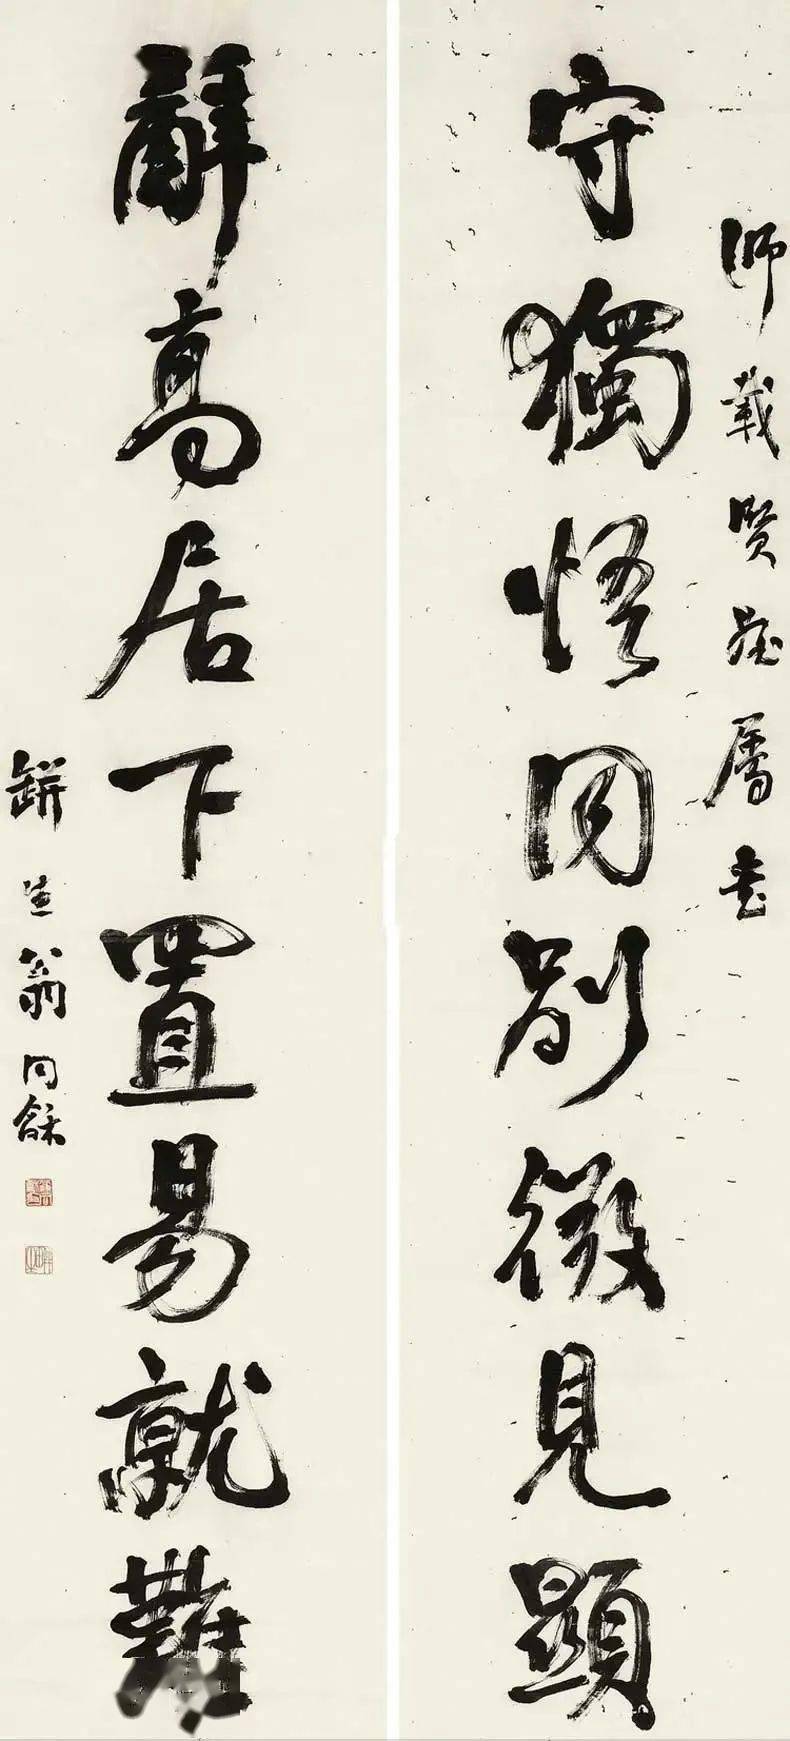 師載賢屬書
守獨悟同別微見顯
辭高居下置易就難
缾生翁同龢